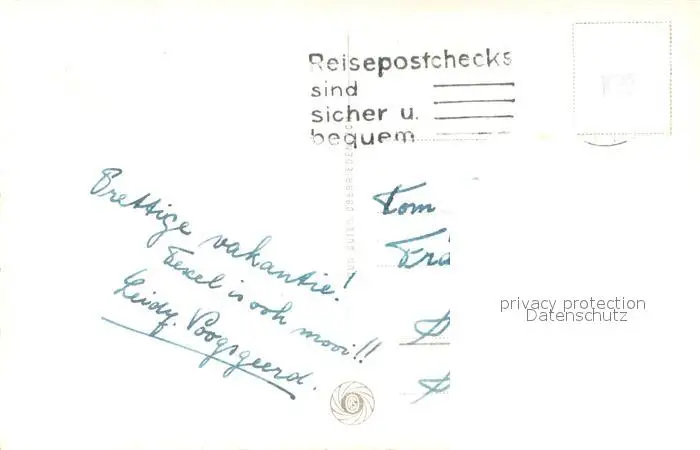 Reisepostchecks
sind
sicher u.
bequem
Prettige vakantie!
Texel is ook mooi!!
Leidy.
Tom
privacy protection
Datenschutz